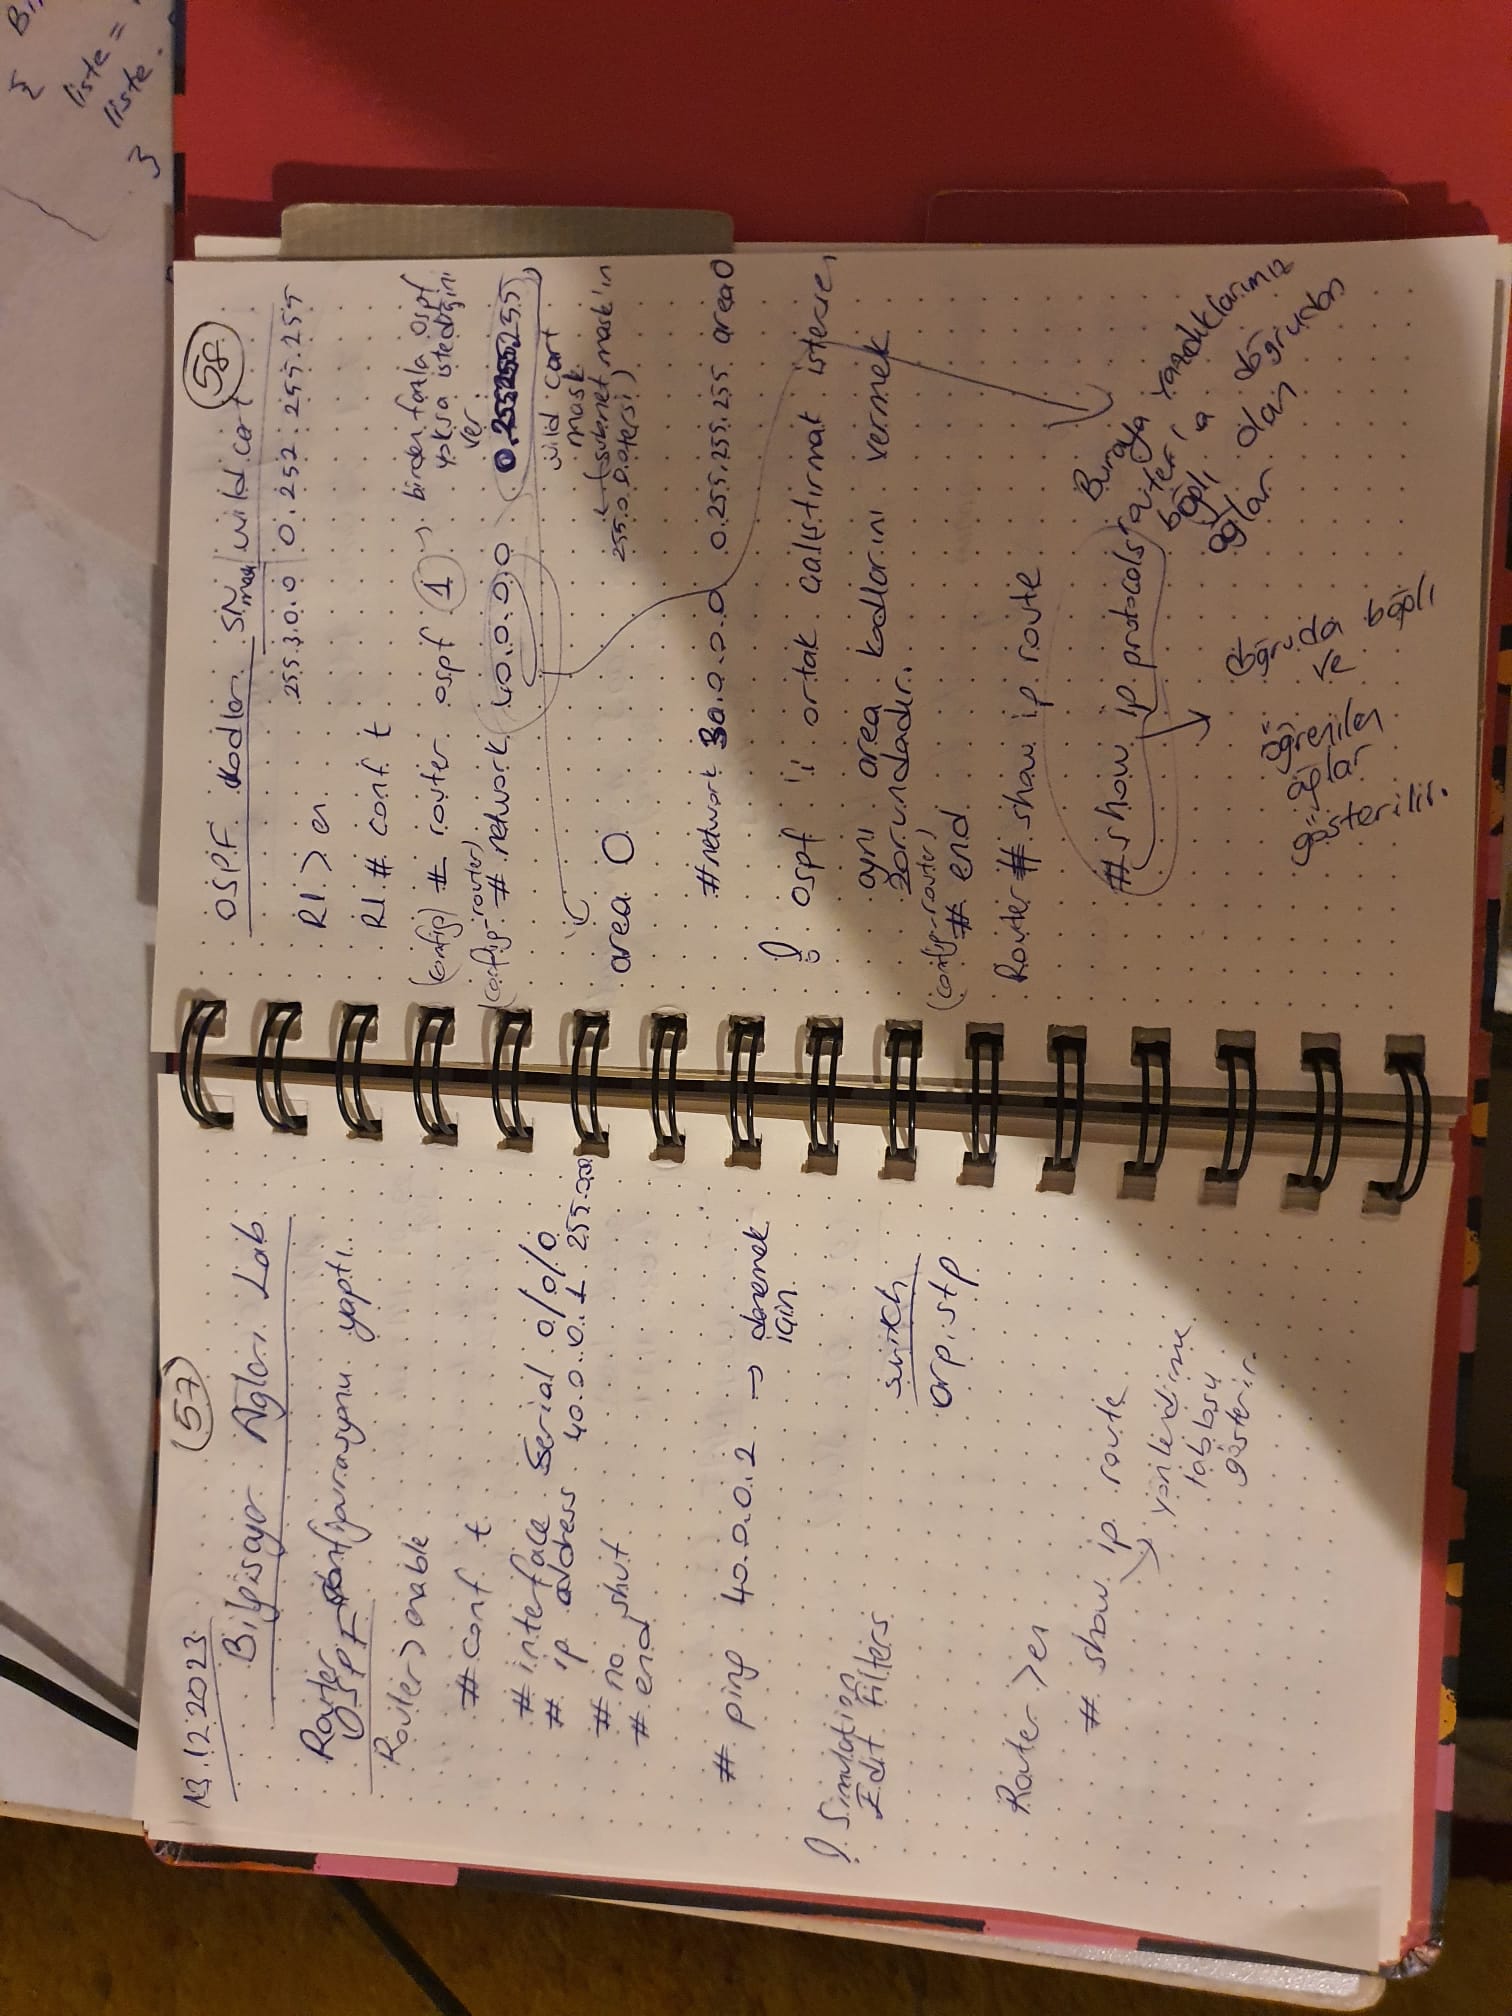 13.12.2023
57
Bilgisayar Ağları Lab
Router konfigurasyonu yaptı.
OSPF
Router> enable
# conf t
# interface Serial 0/0/0
# ip address 40.0.0.1 255.0.0.0
# no shut
# end
# ping 40.0.0.2 → denemek
için
! Simulation
Edit Filters
switch
arp, stp
Router >en
# show ip route
yönlendirme
tablosu
gösterir.
58
OSPF Kodları SN mask wild cart
255.3.0.0 0.252.255.255
R1 > en
R1 # conf t
(config) # router ospf 1 → birden fazla ospf
yoksa istediğini
ver
(config-router)
# network 40.0.0.0 0.255.255.255
wild cart
mask
← (subnet mask'ın
255.0.0.0 tersi)
area 0
# network 30.0.0.0 0.255.255.255 area 0
! ospf 'i ortak çalıştırmak istersen
aynı area kodlarını vermek
zorundadır.
(config-router)
# end
Router # show ip route
# show ip protocols
Buraya yazdıklarımız
router'a doğrudan
bağlı olan
ağlar
doğruda bağlı
ve
öğrenilen
ağlar
gösterilir.
Bi
{
liste =
liste.
}